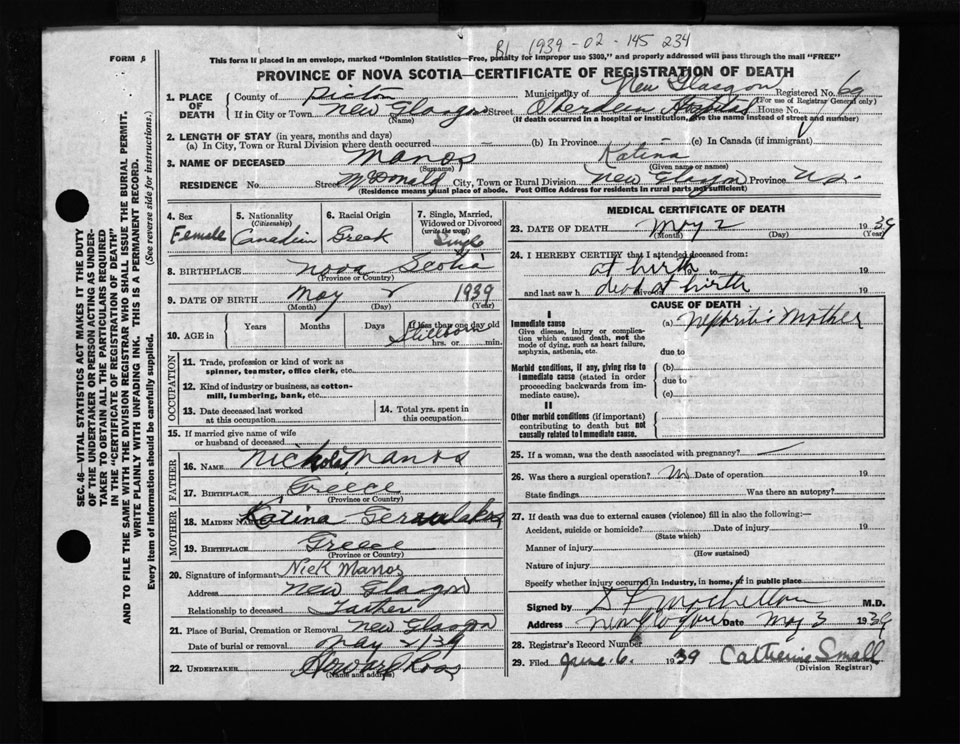 B1 1939 - 02 - 145 234
FORM 6
This form if placed in an envelope, marked "Dominion Statistics—Free, penalty for improper use $300," and properly addressed will pass through the mail "FREE"
PROVINCE OF NOVA SCOTIA—CERTIFICATE OF REGISTRATION OF DEATH
1. PLACE OF DEATH
County of Pictou Municipality of New Glasgow Registered No. 69
(For use of Registrar General only)
If in City or Town New Glasgow Street Aberdeen Hospital House No.
(Name) (If death occurred in a hospital or institution, give the name instead of street and number)
2. LENGTH OF STAY (in years, months and days)
(a) In City, Town or Rural Division where death occurred — (b) In Province - (c) In Canada (if immigrant)
3. NAME OF DECEASED Manos Katina
(Surname) (Given name or names)
RESIDENCE No. Street McDonald City, Town or Rural Division New Glasgow Province N.S.
(Residence means usual place of abode. Post Office Address for residents in rural parts not sufficient)
4. Sex
Female
5. Nationality
(Citizenship)
Canadian
6. Racial Origin
Greek
7. Single, Married, Widowed or Divorced
(write the word)
Single
8. BIRTHPLACE Nova Scotia
(Province or Country)
9. DATE OF BIRTH May 2 1939
(Month) (Day) (Year)
10. AGE in
Years Months Days If less than one day old
Stillborn
hrs. or min.
OCCUPATION
11. Trade, profession or kind of work as
spinner, teamster, office clerk, etc.
12. Kind of industry or business, as cotton-
mill, lumbering, bank, etc.
13. Date deceased last worked
at this occupation
14. Total yrs. spent in
this occupation
15. If married give name of wife
or husband of deceased
FATHER
16. NAME Nicholas Manos
17. BIRTHPLACE Greece
(Province or Country)
MOTHER
18. MAIDEN NAME Katina
19. BIRTHPLACE Greece
(Province or Country)
20. Signature of informant Nick Manos
Address New Glasgow
Relationship to deceased Father
21. Place of Burial, Cremation or Removal New Glasgow
Date of burial or removal May 2/39
22. UNDERTAKER Howard Ross
(Name and address)
MEDICAL CERTIFICATE OF DEATH
23. DATE OF DEATH May 2 1939
(Month) (Day) (Year)
24. I HEREBY CERTIFY that I attended deceased from:
at birth to 19
and last saw h alive on dead at birth 19
CAUSE OF DEATH
I
Immediate cause
Give disease, injury or complica-
tion which caused death, not the
mode of dying, such as heart failure,
asphyxia, asthenia, etc.
(a) Nephritis Mother
due to
Morbid conditions, if any, giving rise to
immediate cause (stated in order
proceeding backwards from im-
mediate cause).
(b)
due to
(c)
II
Other morbid conditions (if important)
contributing to death but not
causally related to immediate cause.
25. If a woman, was the death associated with pregnancy?
26. Was there a surgical operation? No Date of operation 19
State findings Was there an autopsy?
27. If death was due to external causes (violence) fill in also the following:—
Accident, suicide or homicide? Date of injury 19
(State which)
Manner of injury
(How sustained)
Nature of injury
Specify whether injury occurred in industry, in home, or in public place
Signed by M.D.
Address New Glasgow Date May 3 1939
28. Registrar's Record Number
29. Filed June 6. 1939 Catherine Small
(Division Registrar)
SEC. 46—VITAL STATISTICS ACT MAKES IT THE DUTY
OF THE UNDERTAKER OR PERSON ACTING AS UNDER-
TAKER TO OBTAIN ALL THE PARTICULARS REQUIRED
IN THE "CERTIFICATE OF REGISTRATION OF DEATH"
AND TO FILE THE SAME WITH THE DIVISION REGISTRAR WHO SHALL ISSUE THE BURIAL PERMIT.
WRITE PLAINLY WITH UNFADING INK. THIS IS A PERMANENT RECORD.
Every item of information should be carefully supplied. (See reverse side for instructions.)